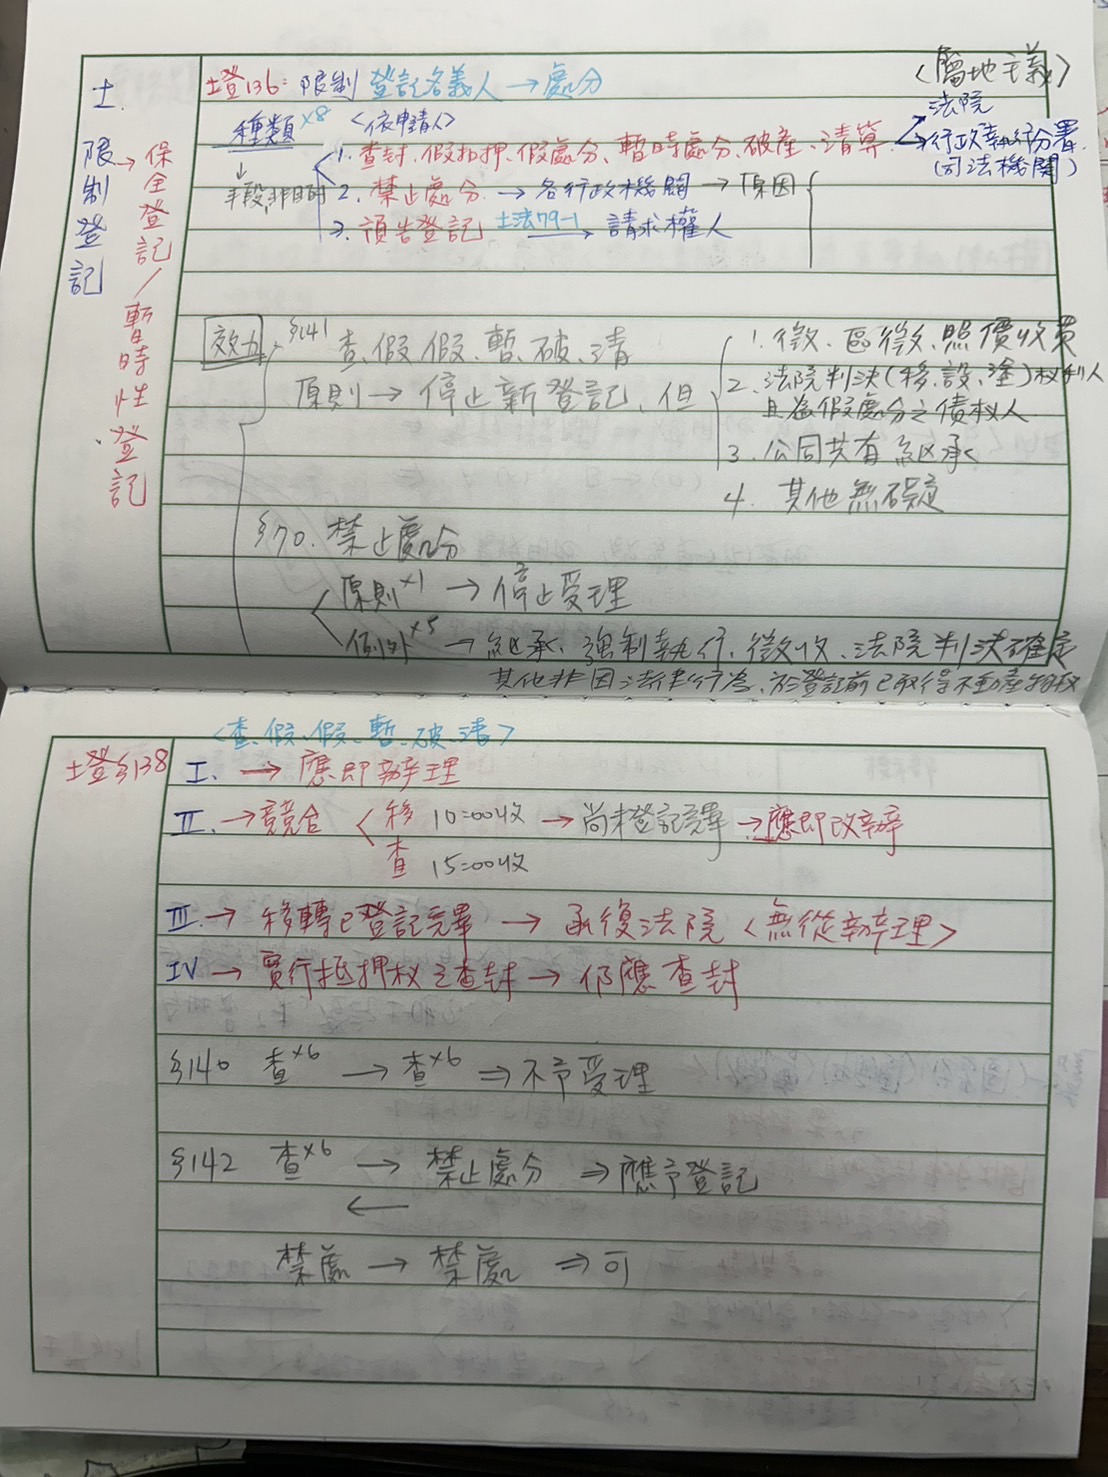 土.
限制登記
→保全登記/暫時性登記
土登136:限制登記名義人→處分
<屬地主義>
種類×8 <依申請人>
法院
↓
手段,非目的
1. 查封、假扣押、假處分、暫時處分、破產、清算→行政執行分署
(司法機關)
2. 禁止處分→各行政機關→原因
3. 預告登記 土法79-1→請求權人
效力
§141 查、假、假、暫、破、清
原則→停止新登記,但
1. 徵、區徵、照價收買
2. 法院判決(移、設、塗)權利人
且為假處分之債权人
3. 公同共有繼承
4. 其他無礙
§70. 禁止處分
原則×1→停止受理
例外×5→繼承、強制執行、徵收、法院判決確定
其他非因法律行為、於登記前已取得不動產物权
<查、假、假、暫、破、清>
土登§138 I. →應即辦理
II. →競合 移 10:00收→尚未登記完畢→應即改辦
查 15:00收
III. →移轉已登記完畢→函復法院<無從辦理>
IV→實行抵押权之查封→仍應查封
§140 查×6→查×6⇒不予受理
§142 查×6→禁止處分⇒應予登記
←
禁處→禁處⇒可